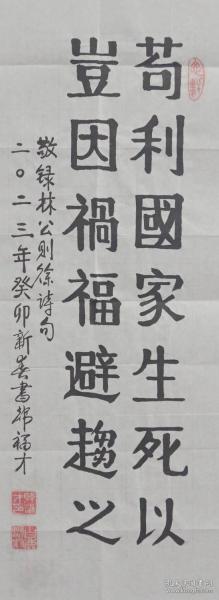 苟利國家生死以
豈因禍福避趨之
敬録林公則徐詩句
二〇二三年癸卯新春書
孔夫子旧书网